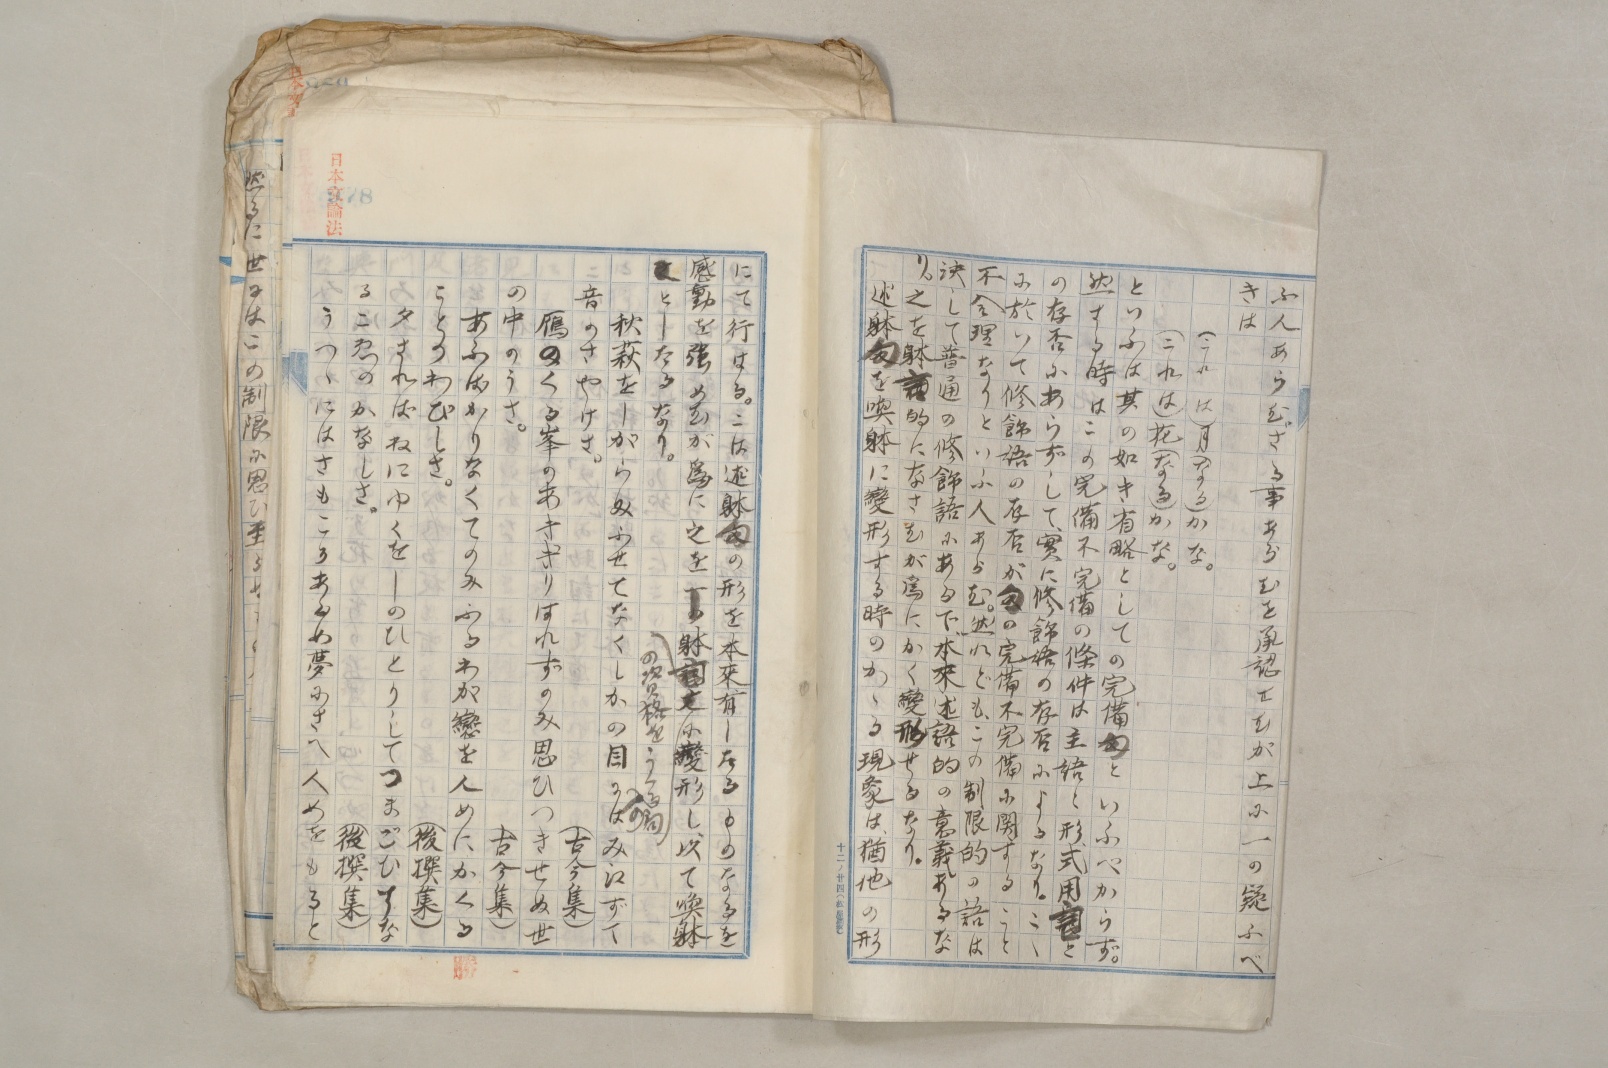 ふ人あらむ。さる事あらむを承認せむが上に一の疑ふべ
きは
(これは)月(なる)かな。
(これは)花(なる)かな。
といふは其の如き省略としての完備句といふべからず。
然する時はこの完備不完備の條件は主語と形式用言と
の存否にあらずして、實に修飾語の存否によるなり。こゝ
に於いて修飾語の存否が句の完備不完備に関すること
不合理なりといふ人あらむ。然れども、この制限的の語は
決して普通の修飾語にあらで本来述語的の意義あるな
り。之を躰言的になさむが為にかく變形せるなり。
述躰句を喚躰に變形する時のかゝる現象は、猶他の形
十二ノ廿四
にて行はる。こは述躰句の形を本來有したるものなるを
感動を強めむが為に之を一の躰言に變形し、以て喚躰
の資格をうる句
としたるなり。
秋萩をしがらみふせてなくしかの目にはみえずて
音のさやけさ。(古今集)
雁のくる峯のあさぎりはれずのみ思ひつきせぬ世
の中のうさ。(古今集)
あふばかりなくてのみふるわが戀を人めにかくる
ことのわびしさ。(後撰集)
夕さればねにゆくをしのひとりしてつまごひすな
るこゑのかなしさ。(後撰集)
うつゝにはさもこそあらめ夢にさへ人めをもると
日本文論法
勝
然るに世にはこの制限に思ひ至らず